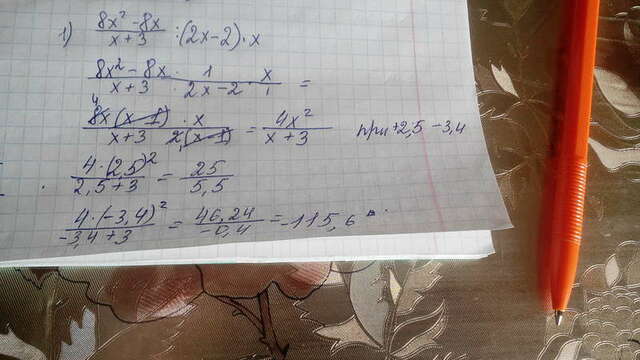 1) (8x² - 8x)/(x + 3) : (2x - 2) · x
(8x² - 8x)/(x + 3) · 1/(2x - 2) · x/1 =
(8x(x - 1) · x)/(x + 3 2(x - 1)) = 4x²/(x + 3) при +2,5 -3,4
(4 · (2,5)²)/(2,5 + 3) = 25/5,5
(4 · (-3,4)²)/(-3,4 + 3) = 46,24/-0,4 = -115,6